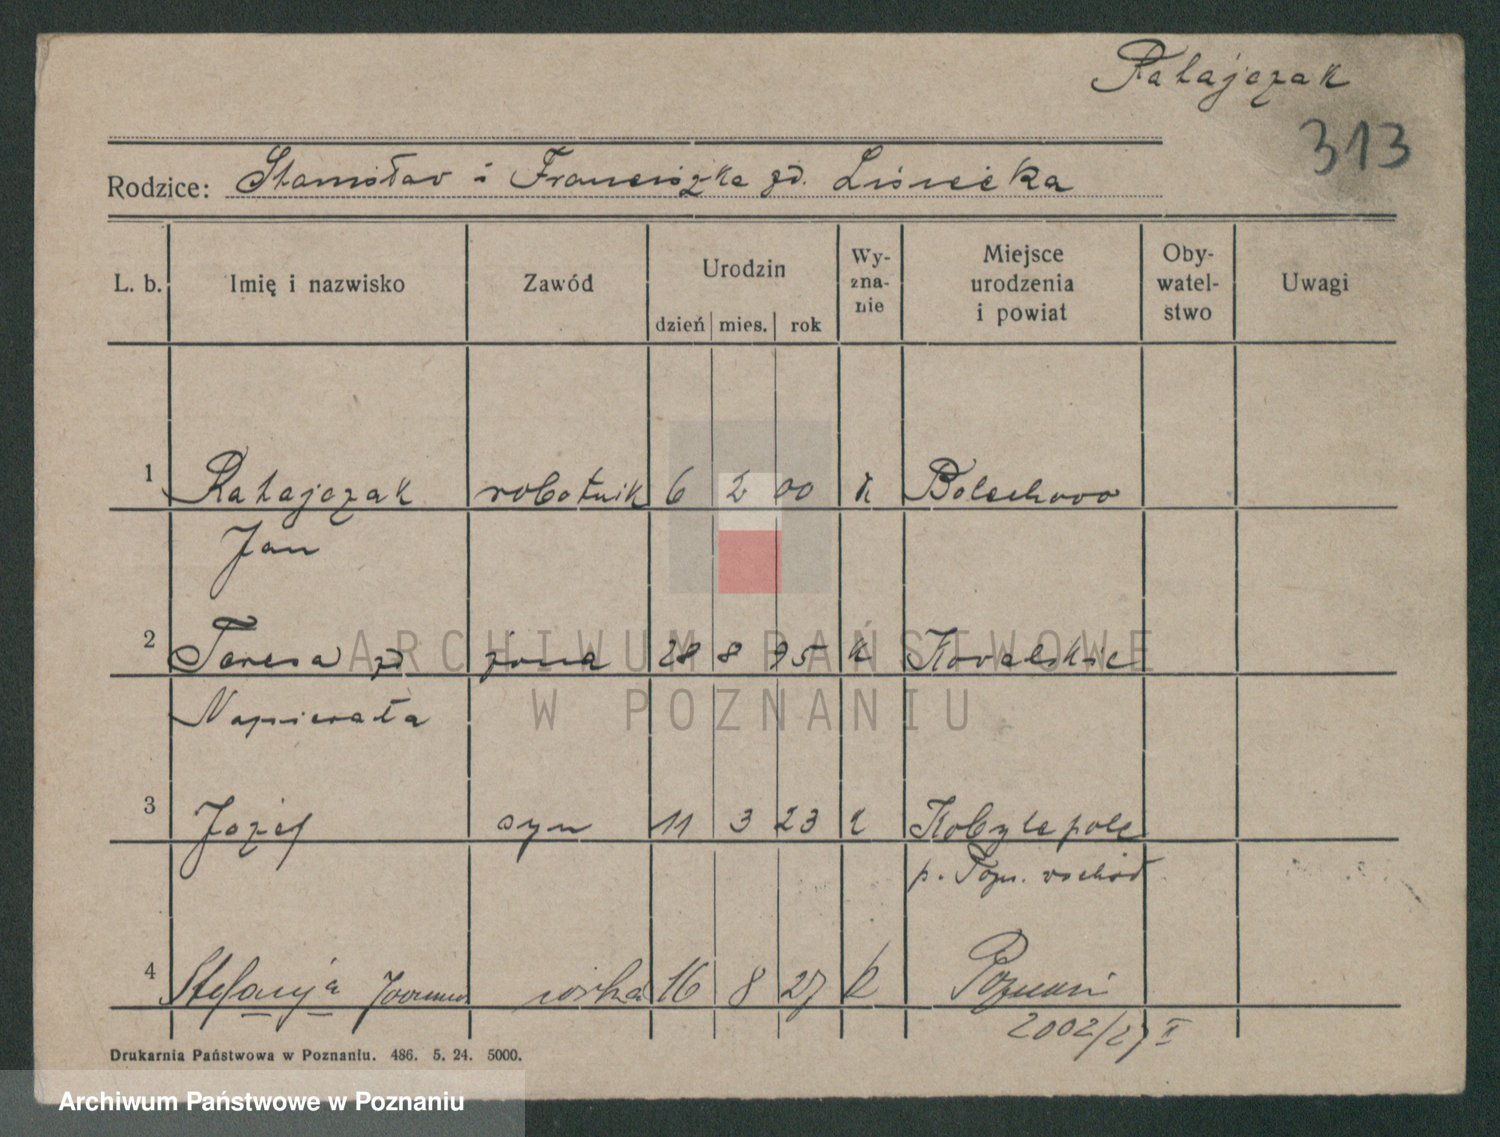 Ratajczak
313
Rodzice: Stanisław i Franciszka zd. Lisiecka
L. b. Imię i nazwisko Zawód Urodzin Wy-zna-nie Miejsce urodzenia i powiat Oby-watel-stwo Uwagi
dzień mies. rok
1 Ratajczak robotnik 6 2 00 k Bolechowo
Jan
2 Teresa zd żona 28 8 95 k Kowalskie
Napierała
3 Józef syn 11 3 23 k Kobylepole
p. Pozn. wschód
4 Stefanja Joanna córka 16 8 27 k Poznań
2002/27 II
Drukarnia Państwowa w Poznaniu. 486. 5. 24. 5000.
ARCHIWUM PAŃSTWOWE
W POZNANIU
Archiwum Państwowe w Poznaniu